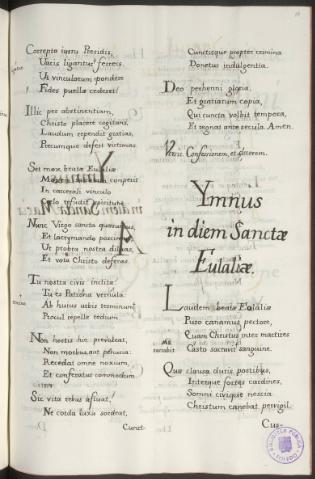 Correpta iussu Præsidis,
Uncis ligantur ferreis,
Ut vinculatum pondere
Fides puellæ cederet.
Illic per abstinentiam,
Christo placere cogitans,
Laudum rependit gratias,
Precumque defert victimas.
Set mox beatæ Eulaliæ
In carcerali vinculo
Nunc Virgo sancta quæsumus,
Et lacrymando poscimus
Ut probra nostra diluas,
Et vota Christo deferas.
Tu nostra civis inclita
Tu es Patrona vernula
Ab hujus urbis terminum
Procul repelle tædium
Non hostis hic prævaleat,
Non morbus, aut penuria
Recedat omne noxium,
Et conferatur commodum
Sic vita rebus affluat,
Ne corda luxu sordeat,
Cunct-
Cunctisque propter crimina
Donetur indulgentia.
Deo perhenni gloria,
Et gratiarum copia,
Qui cuncta volbit tempora,
Et regnat ante secula. Amen.
Versi. Confessionem, et ceterum.
Ymnus
in diem Sanctæ
Eulaliæ.
Laudem beatæ Eulaliæ
Puro canamus pectore,
Quam Christus inter martires
Casto sacravit sanguine.
Quæ clausa duris postibus,
Interque fortes cardines,
Somni civique nescia
Christum canebat pervigil.
Cus-
BIBLIOTECA PUBLICA
TOLEDO